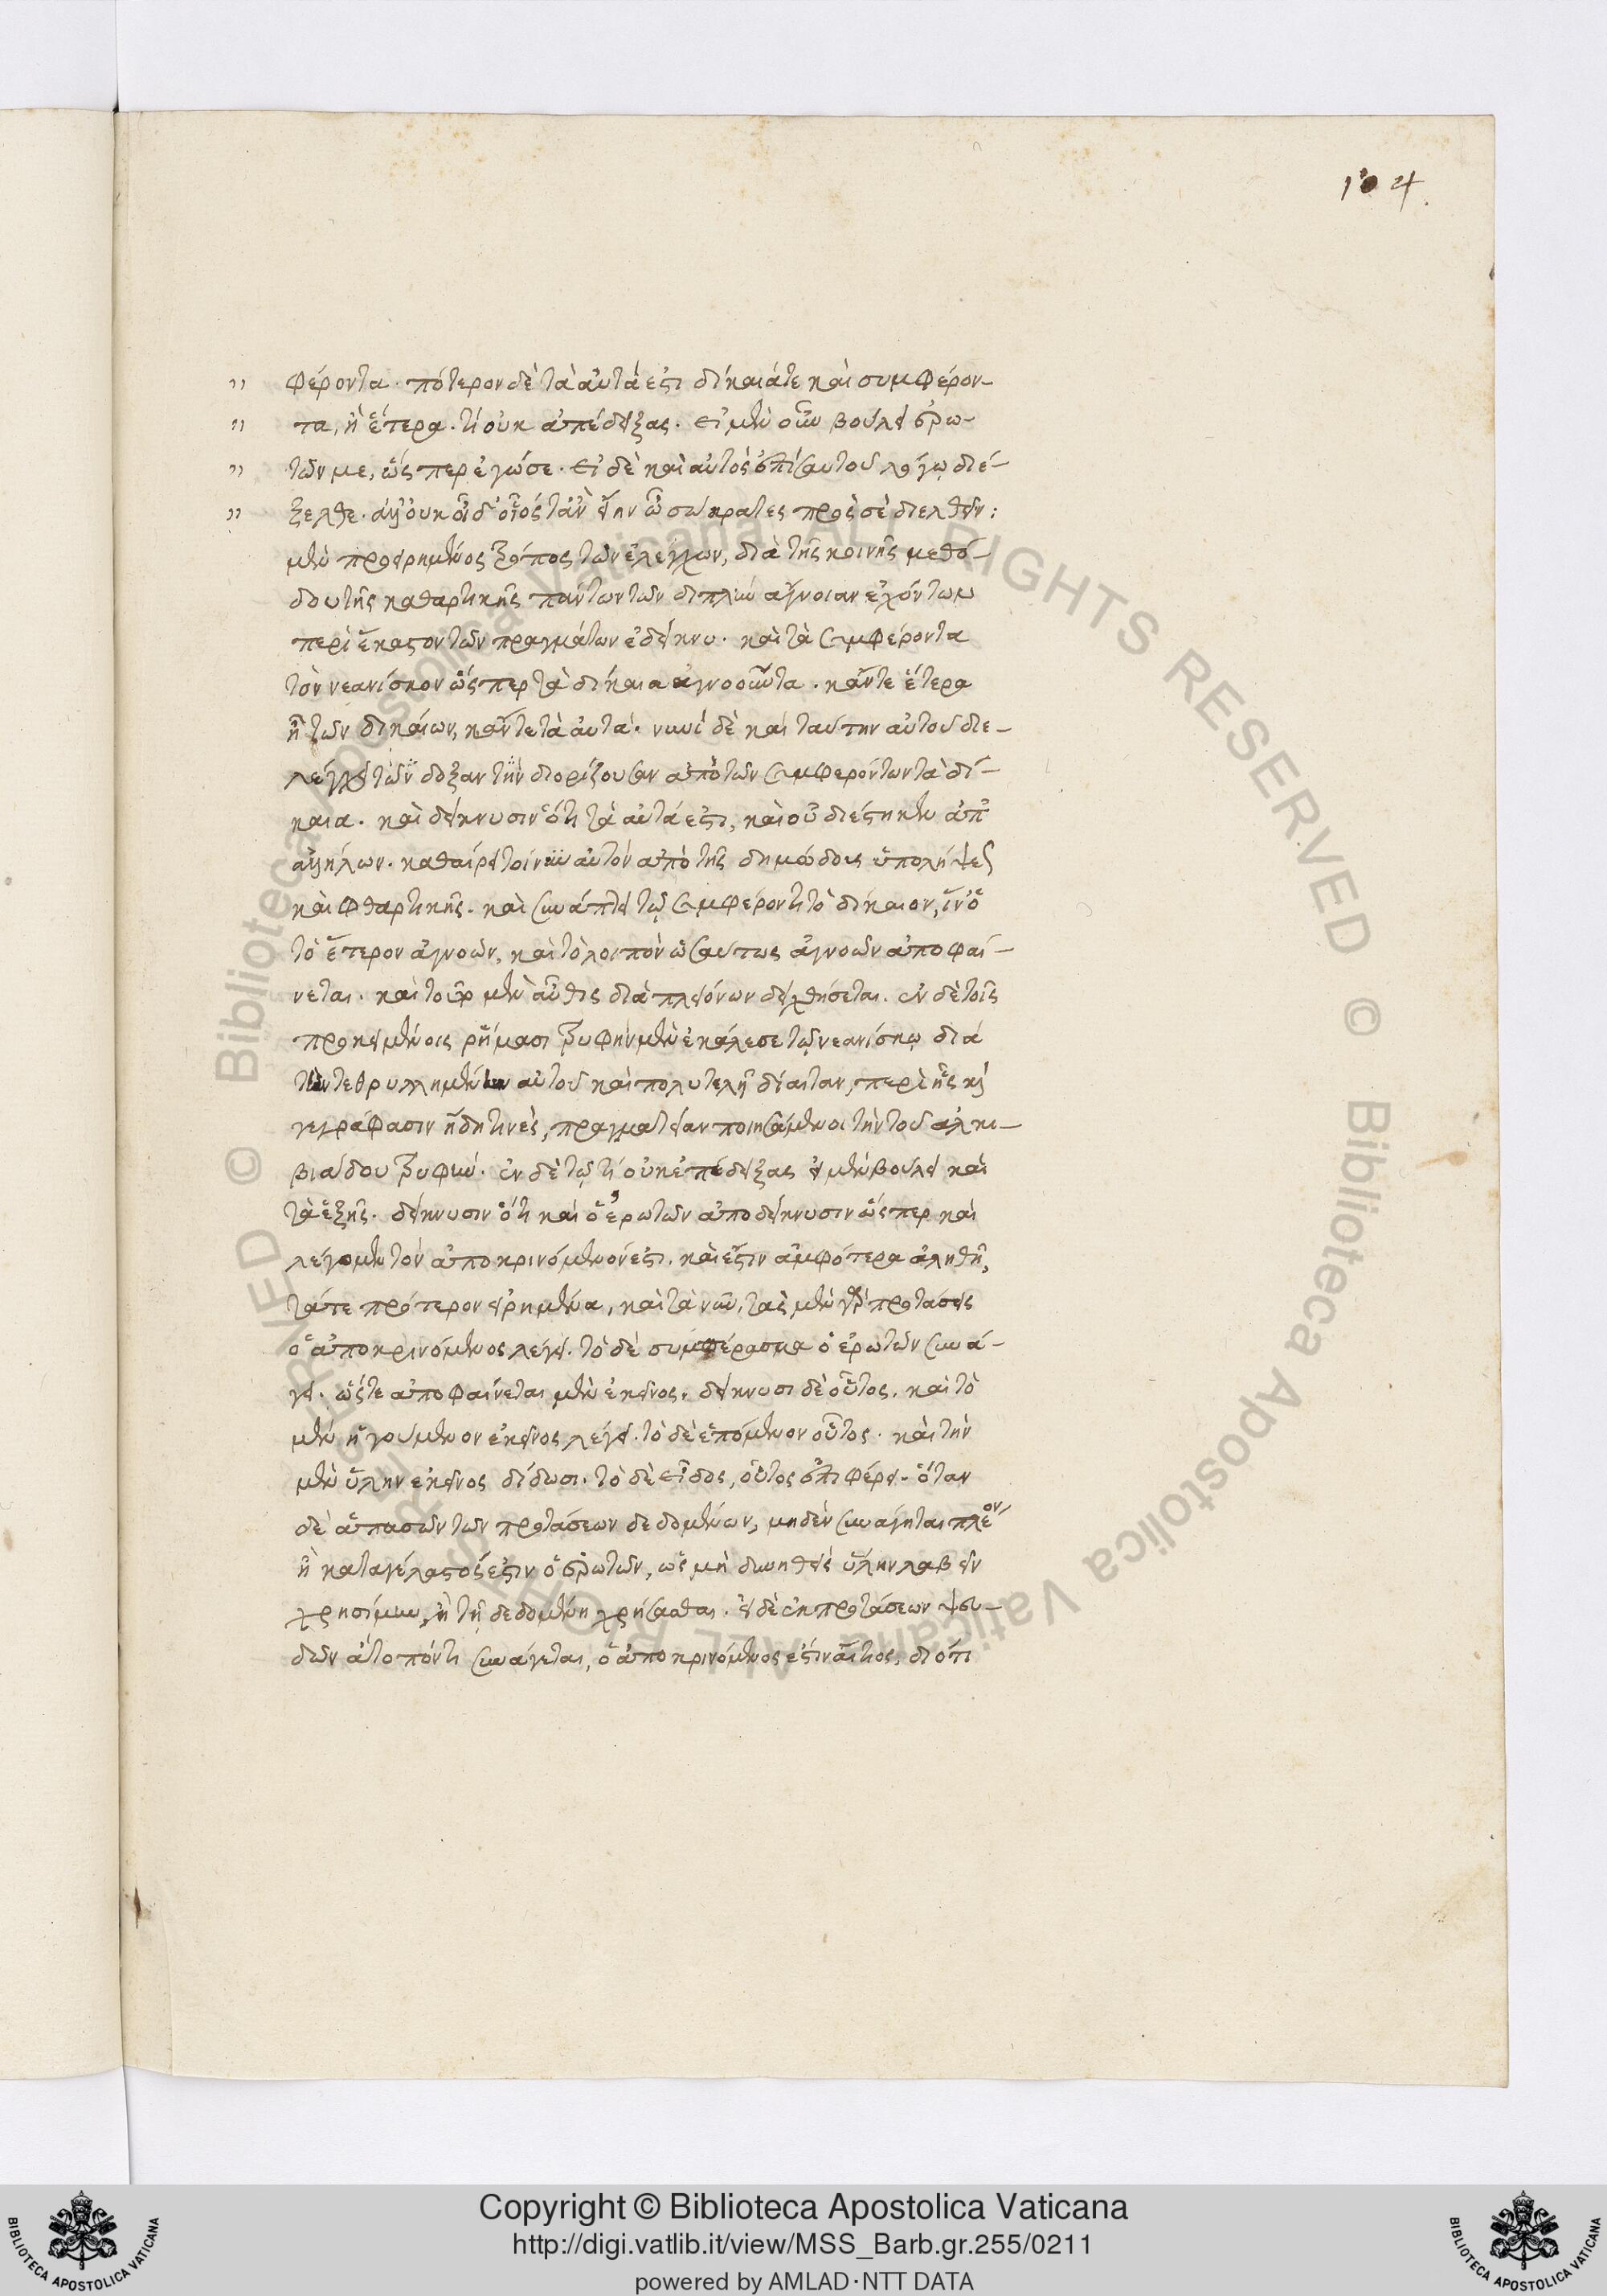 104.
" φέροντα. πότερον δὲ τὰ αὐτά ἐστι δίκαιά τε καὶ συμφέρον-
" τα, ἢ ἕτερα. τί οὐκ ἀπέδειξας. εἰ μὲν οὖν βούλει ἐρω-
" τῶν με, ὥςπερ ἐγώ σε. εἰ δὲ καὶ αὐτὸς ἐπὶ σαυτοῦ λόγῳ διέ-
" ξελθε. ἀλλ' οὐκ οἶδ' οἷός τ' ἂν εἴην ὦ σώκρατες πρὸς σὲ διελθεῖν:
μὲν προειρημένος τρόπος τῶν ἐλέγχων, διὰ τῆς κοινῆς μεθό-
δου τῆς καθαρτικῆς πάντων τῶν διπλὴν ἄγνοιαν ἐχόντων
περὶ ἕκαστον τῶν πραγμάτων ἐδείκνυ. καὶ τὰ συμφέροντα
τὸν νεανίσκον ὥςπερ τὰ δίκαια ἀγνοοῦντα. κἄν τε ἕτερα
ἦ τῶν δικαίων, κἄν τε τὰ αὐτά. νυνὶ δὲ καὶ ταύτην αὐτοῦ διε-
λέγχει τὴν δόξαν τὴν διορίζουσαν ἀπὸ τῶν συμφερόντων τὰ δί-
καια. καὶ δείκνυσιν ὅτι τὰ αὐτά ἐστι, καὶ οὐ διέστηκεν ἀπ'
ἀλλήλων. καθαίρει τοίνυν αὐτὸν ἀπὸ τῆς δημώδους ὑπολήψεως
καὶ φθαρτικῆς. καὶ συνάπτει τῷ συμφέροντι τὸ δίκαιον, ἵν' ὁ
τὸ ἕτερον ἀγνοῶν, καὶ τὸ λοιπὸν ὡσαύτως ἀγνοῶν ἀποφαί-
νεται. καὶ τοῦτο μὲν αὖθις διὰ πλειόνων δειχθήσεται. ἐν δὲ τοῖς
προκειμένοις ῥήμασι τρυφὴν μὲν ἐκάλεσε τῷ νεανίσκῳ διὰ
τὴν τεθρυλλημένην αὐτοῦ καὶ πολυτελῆ δίαιταν, περὶ ἧς καὶ
γεγράφασιν ἤδη τινὲς, πραγματείαν ποιησάμενοι τὴν τοῦ ἀλκι-
βιάδου τρυφήν. ἐν δὲ τῷ τί οὐκ ἐπέδειξας εἰ μὲν βούλει καὶ
τὰ ἑξῆς. δείκνυσιν ὅτι καὶ ὁ ἐρωτῶν ἀποδείκνυσιν ὥςπερ καὶ
λέγομεν τὸν ἀποκρινόμενόν ἐστι. καὶ ἔστιν ἀμφότερα ἀληθῆ,
τά τε πρότερον εἰρημένα, καὶ τὰ νῦν. τὰς μὲν γὰρ προτάσεις
ὁ ἀποκρινόμενος λέγει. τὸ δὲ συμπέρασμα ὁ ἐρωτῶν συνά-
γει. ὥςτε ἀποφαίνεται μὲν ἐκεῖνος. δείκνυσι δὲ οὗτος. καὶ τὸ
μὲν ἡγούμενον ἐκεῖνος λέγει. τὸ δὲ ἑπόμενον οὗτος. καὶ τὴν
μὲν ὕλην ἐκεῖνος δίδωσι. τὸ δὲ εἶδος, οὗτος ἐπιφέρει. ὅταν
δὲ ἁπασῶν τῶν προτάσεων δεδομένων, μηδὲν συνάγηται πλέον
ἢ καταγέλαστός ἐστιν ὁ ἐρωτῶν, ὡς μὴ δυνηθεὶς ὕλην λαβεῖν
χρησίμην, ἢ τῇ δεδομένῃ χρήσασθαι. εἰ δὲ ἐκ προτάσεων ψευ-
δῶν ἄτοπόν τι συνάγεται, ὁ ἀποκρινόμενος ἐστιν αἴτιος, διότι
Copyright © Biblioteca Apostolica Vaticana
http://digi.vatlib.it/view/MSS_Barb.gr.255/0211
powered by AMLAD·NTT DATA